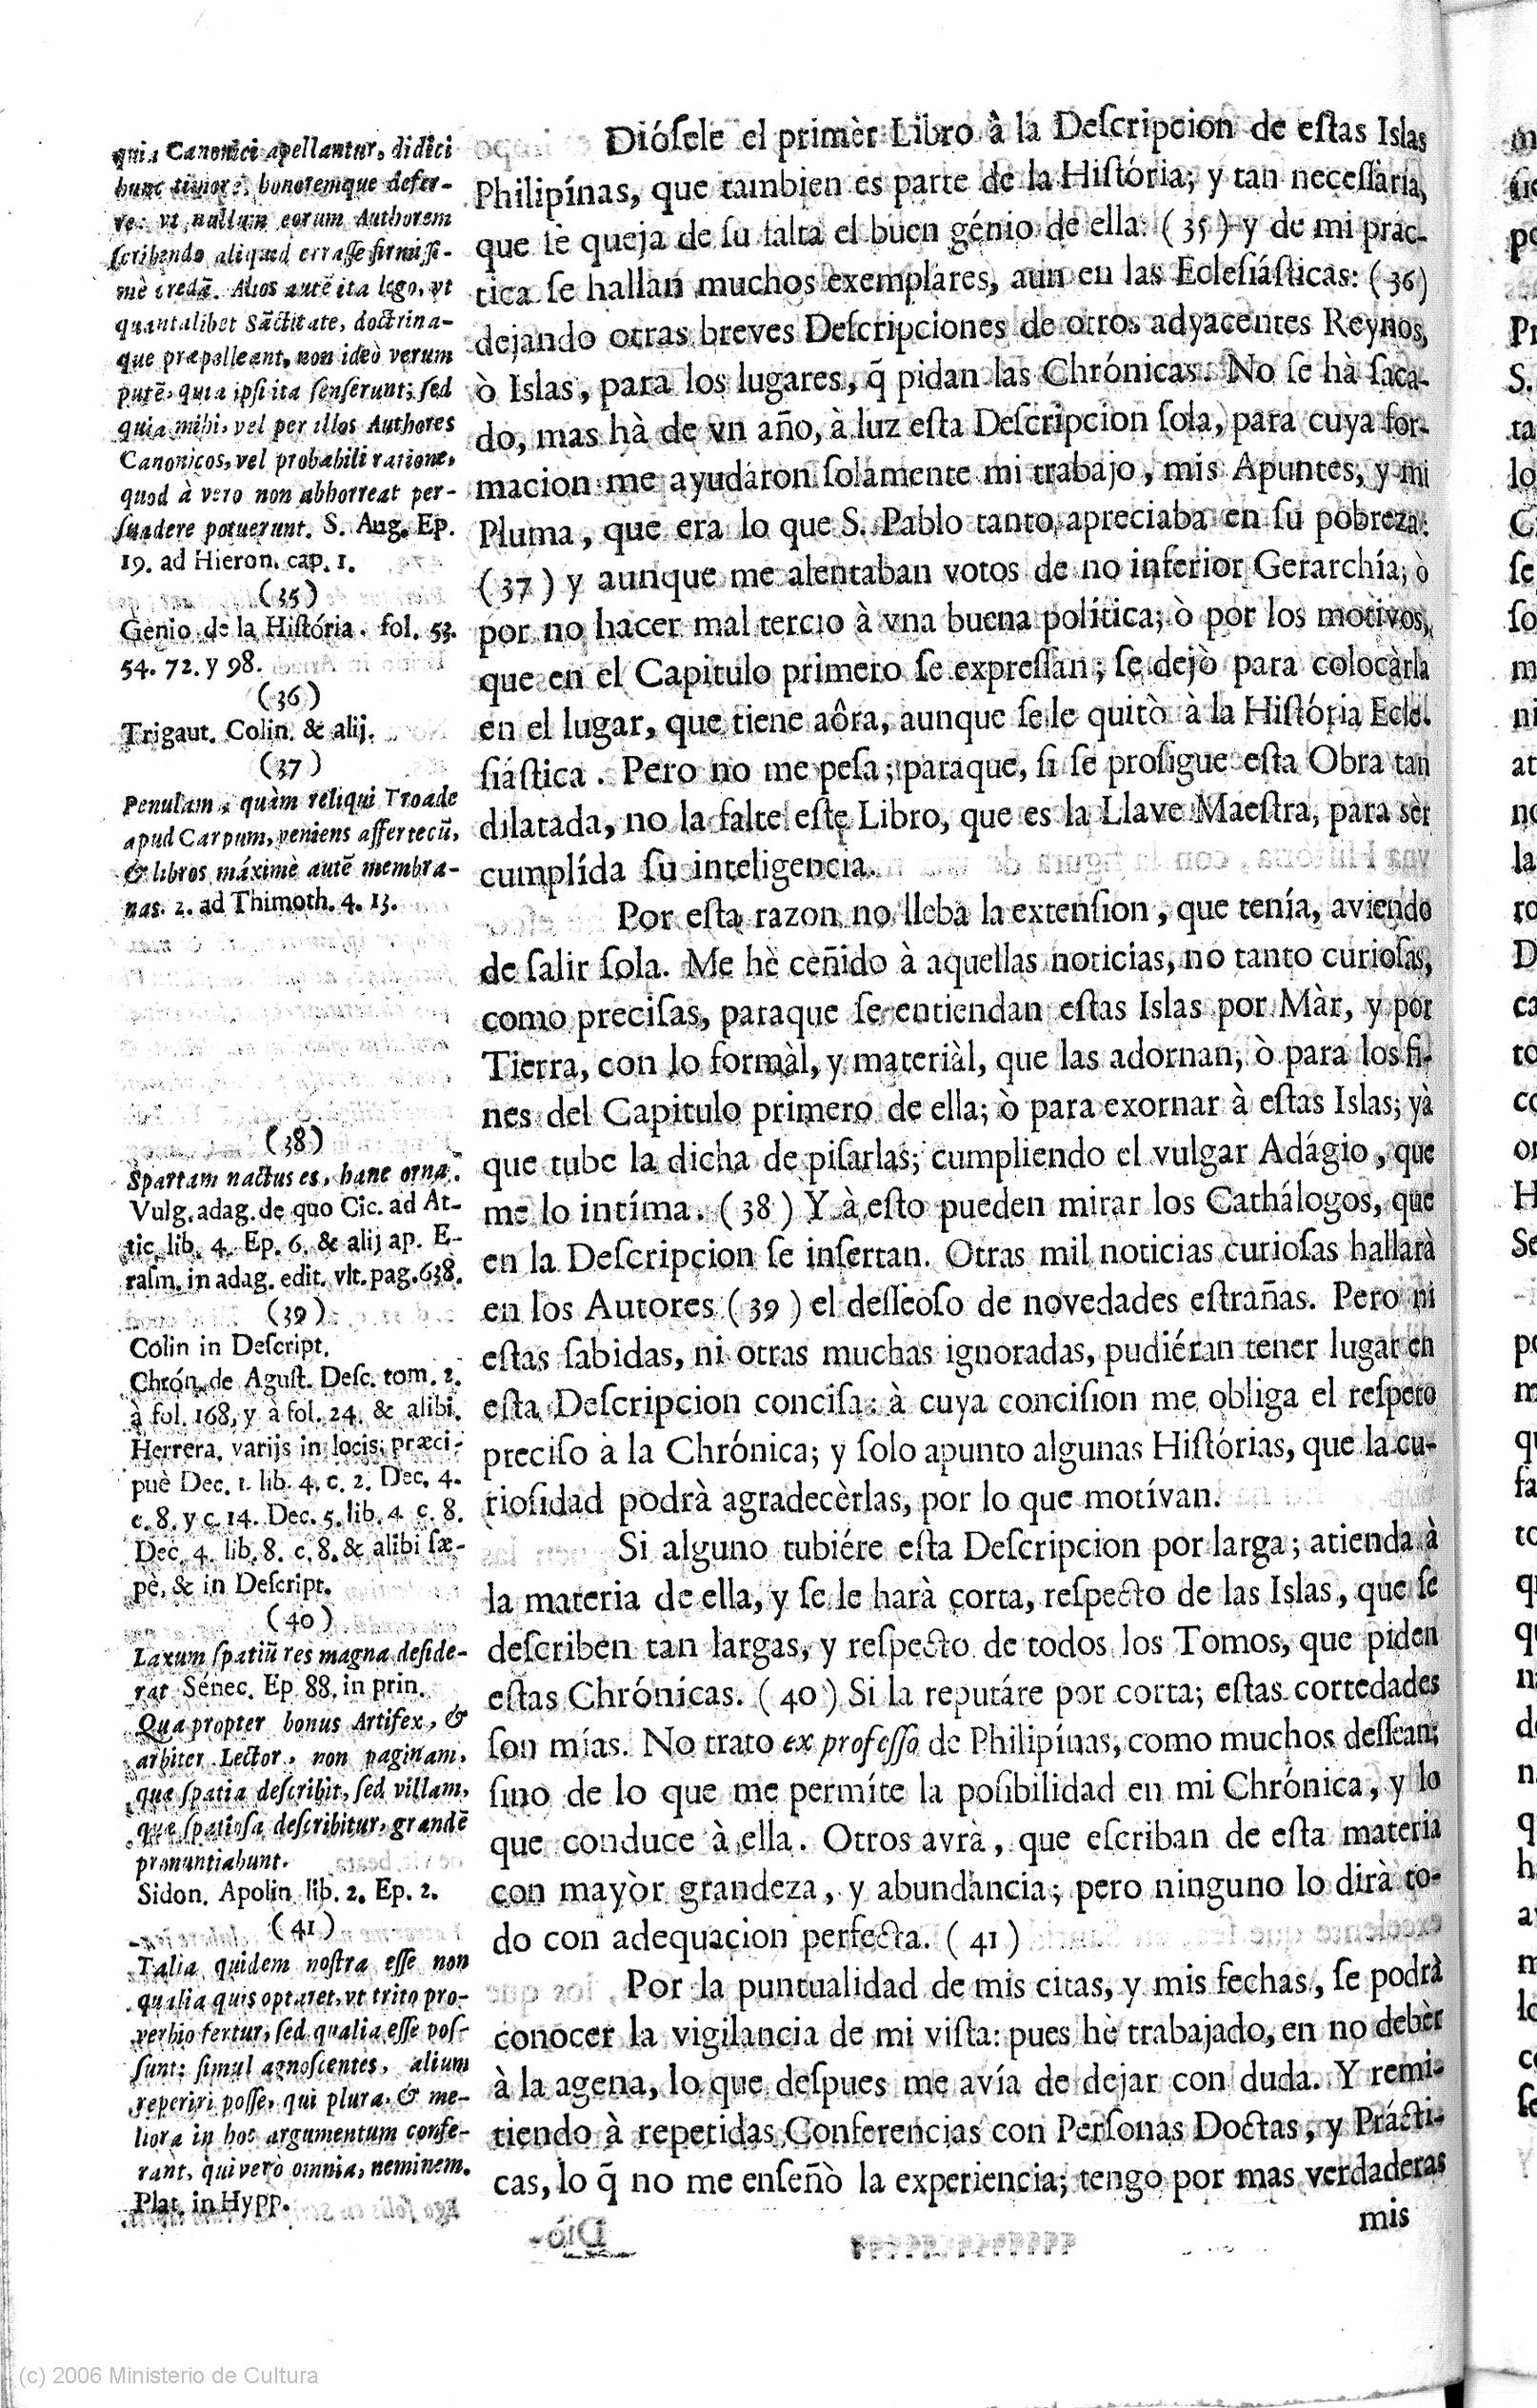 quia Canonici apellantur, didici
hunc timorē, honoremque defer-
re: vt, nullum eorum Authorem
scribendo aliquod errasse firmissi-
mè credā. Alios autē ita lego, vt
quantalibet Sāctitate, doctrina-
que præpolleant, non ideò verum
putē, quia ipsi ita senserunt; sed
quia mihi, vel per illos Authores
Canonicos, vel probabili ratione,
quod à vero non abhorreat per-
suadere potuerunt. S. Aug. Ep.
19. ad Hieron. cap. 1.
(35)
Genio de la História. fol. 53.
54. 72. y 98.
(36)
Trigaut. Colin. & alij.
(37)
Penulam, quàm reliqui Troade
apud Carpum, veniens affer tecū,
& libros máximè autē membra-
nas. 2. ad Thimoth. 4. 13.
(38)
Spartam nactus es, hanc orna.
Vulg. adag. de quo Cic. ad At-
tic. lib. 4. Ep. 6. & alij ap. E-
rasm. in adag. edit. vlt. pag. 638.
(39)
Colin in Descript.
Chrón. de Agust. Desc. tom. 2.
à fol. 168, y à fol. 24. & alibi.
Herrera. varijs in locis; præci-
puè Dec. 1. lib. 4. c. 2. Dec. 4.
c. 8. y c. 14. Dec. 5. lib. 4. c. 8.
Dec. 4. lib. 8. c. 8. & alibi sæ-
pè, & in Descript.
(40)
Laxum spatiū res magna deside-
rat Sénec. Ep 88. in prin.
Quapropter bonus Artifex, &
arbiter Lector, non paginam,
quæ spatia describit, sed villam,
quæ spatiosa describitur, grandē
pronuntiabunt.
Sidon. Apolin lib. 2. Ep. 2.
(41)
Talia quidem nostra esse non
qualia quis optaret, vt trito pro-
verbio fertur; sed qualia esse pos-
sunt: simul agnoscentes, alium
reperiri posse, qui plura, & me-
liora in hoc argumentum confe-
rant, qui verò omnia, neminem.
Plat. in Hypp.
Diósele el primèr Libro â la Descripcion de estas Islas
Philipínas, que tambien es parte de la História; y tan necessaria,
que sè queja de su falta el buen génio de ella: (35) y de mi prac-
tica se hallan muchos exemplares, aun en las Eclesiásticas: (36)
dejando otras breves Descripciones de otros adyacentes Reynos,
ò Islas, para los lugares, q̃ pidan las Chrónicas. No se hà saca-
do, mas hà de vn año, à luz esta Descripcion sola, para cuya for-
macion me ayudaron solamente mi trabajo, mis Apuntes, y mi
Pluma, que era lo que S. Pablo tanto apreciaba en su pobreza:
(37) y aunque me alentaban votos de no inferior Gerarchía; ò
por no hacer mal tercio à vna buena política; ò por los motivos,
que en el Capitulo primero se expressan; se dejò para colocàrla
en el lugar, que tiene aôra, aunque se le quitò à la História Ecle-
siástica. Pero no me pesa; paraque, si se prosigue esta Obra tan
dilatada, no la falte este Libro, que es la Llave Maestra, para sèr
cumplída su inteligencia.
Por esta razon no lleba la extension, que tenía, aviendo
de salir sola. Me hè ceñido à aquellas noticias, no tanto curiosas,
como precisas, paraque se entiendan estas Islas por Màr, y por
Tierra, con lo formàl, y materiàl, que las adornan; ò para los fi-
nes del Capitulo primero de ella; ò para exornar à estas Islas; yà
que tube la dicha de pisarlas; cumpliendo el vulgar Adágio, que
me lo intíma. (38) Y à esto pueden mirar los Cathálogos, que
en la Descripcion se insertan. Otras mil noticias curiosas hallarà
en los Autores (39) el desseoso de novedades estrañas. Pero ni
estas sabidas, ni otras muchas ignoradas, pudiéran tener lugar en
esta Descripcion concisa: à cuya concision me obliga el respeto
preciso à la Chrónica; y solo apunto algunas Histórias, que la cu-
riosidad podrà agradecèrlas, por lo que motívan.
Si alguno tubiére esta Descripcion por larga; atienda à
la materia de ella, y se le harà corta, respecto de las Islas, que se
describen tan largas, y respecto de todos los Tomos, que piden
estas Chrónicas. (40) Si la reputáre por corta; estas cortedades
son mías. No trato ex professo de Philipínas, como muchos dessean;
sino de lo que me permíte la posibilidad en mi Chrónica, y lo
que conduce à ella. Otros avrà, que escriban de esta materia
con mayòr grandeza, y abundancia; pero ninguno lo dirà to-
do con adequacion perfecta. (41)
Por la puntualidad de mis citas, y mis fechas, se podrà
conocer la vigilancia de mi vista: pues hè trabajado, en no debèr
à la agena, lo que despues me avía de dejar con duda. Y remi-
tiendo à repetidas Conferencias con Personas Doctas, y Prácti-
cas, lo q̃ no me enseñò la experiencia; tengo por mas verdaderas
mis
(c) 2006 Ministerio de Cultura